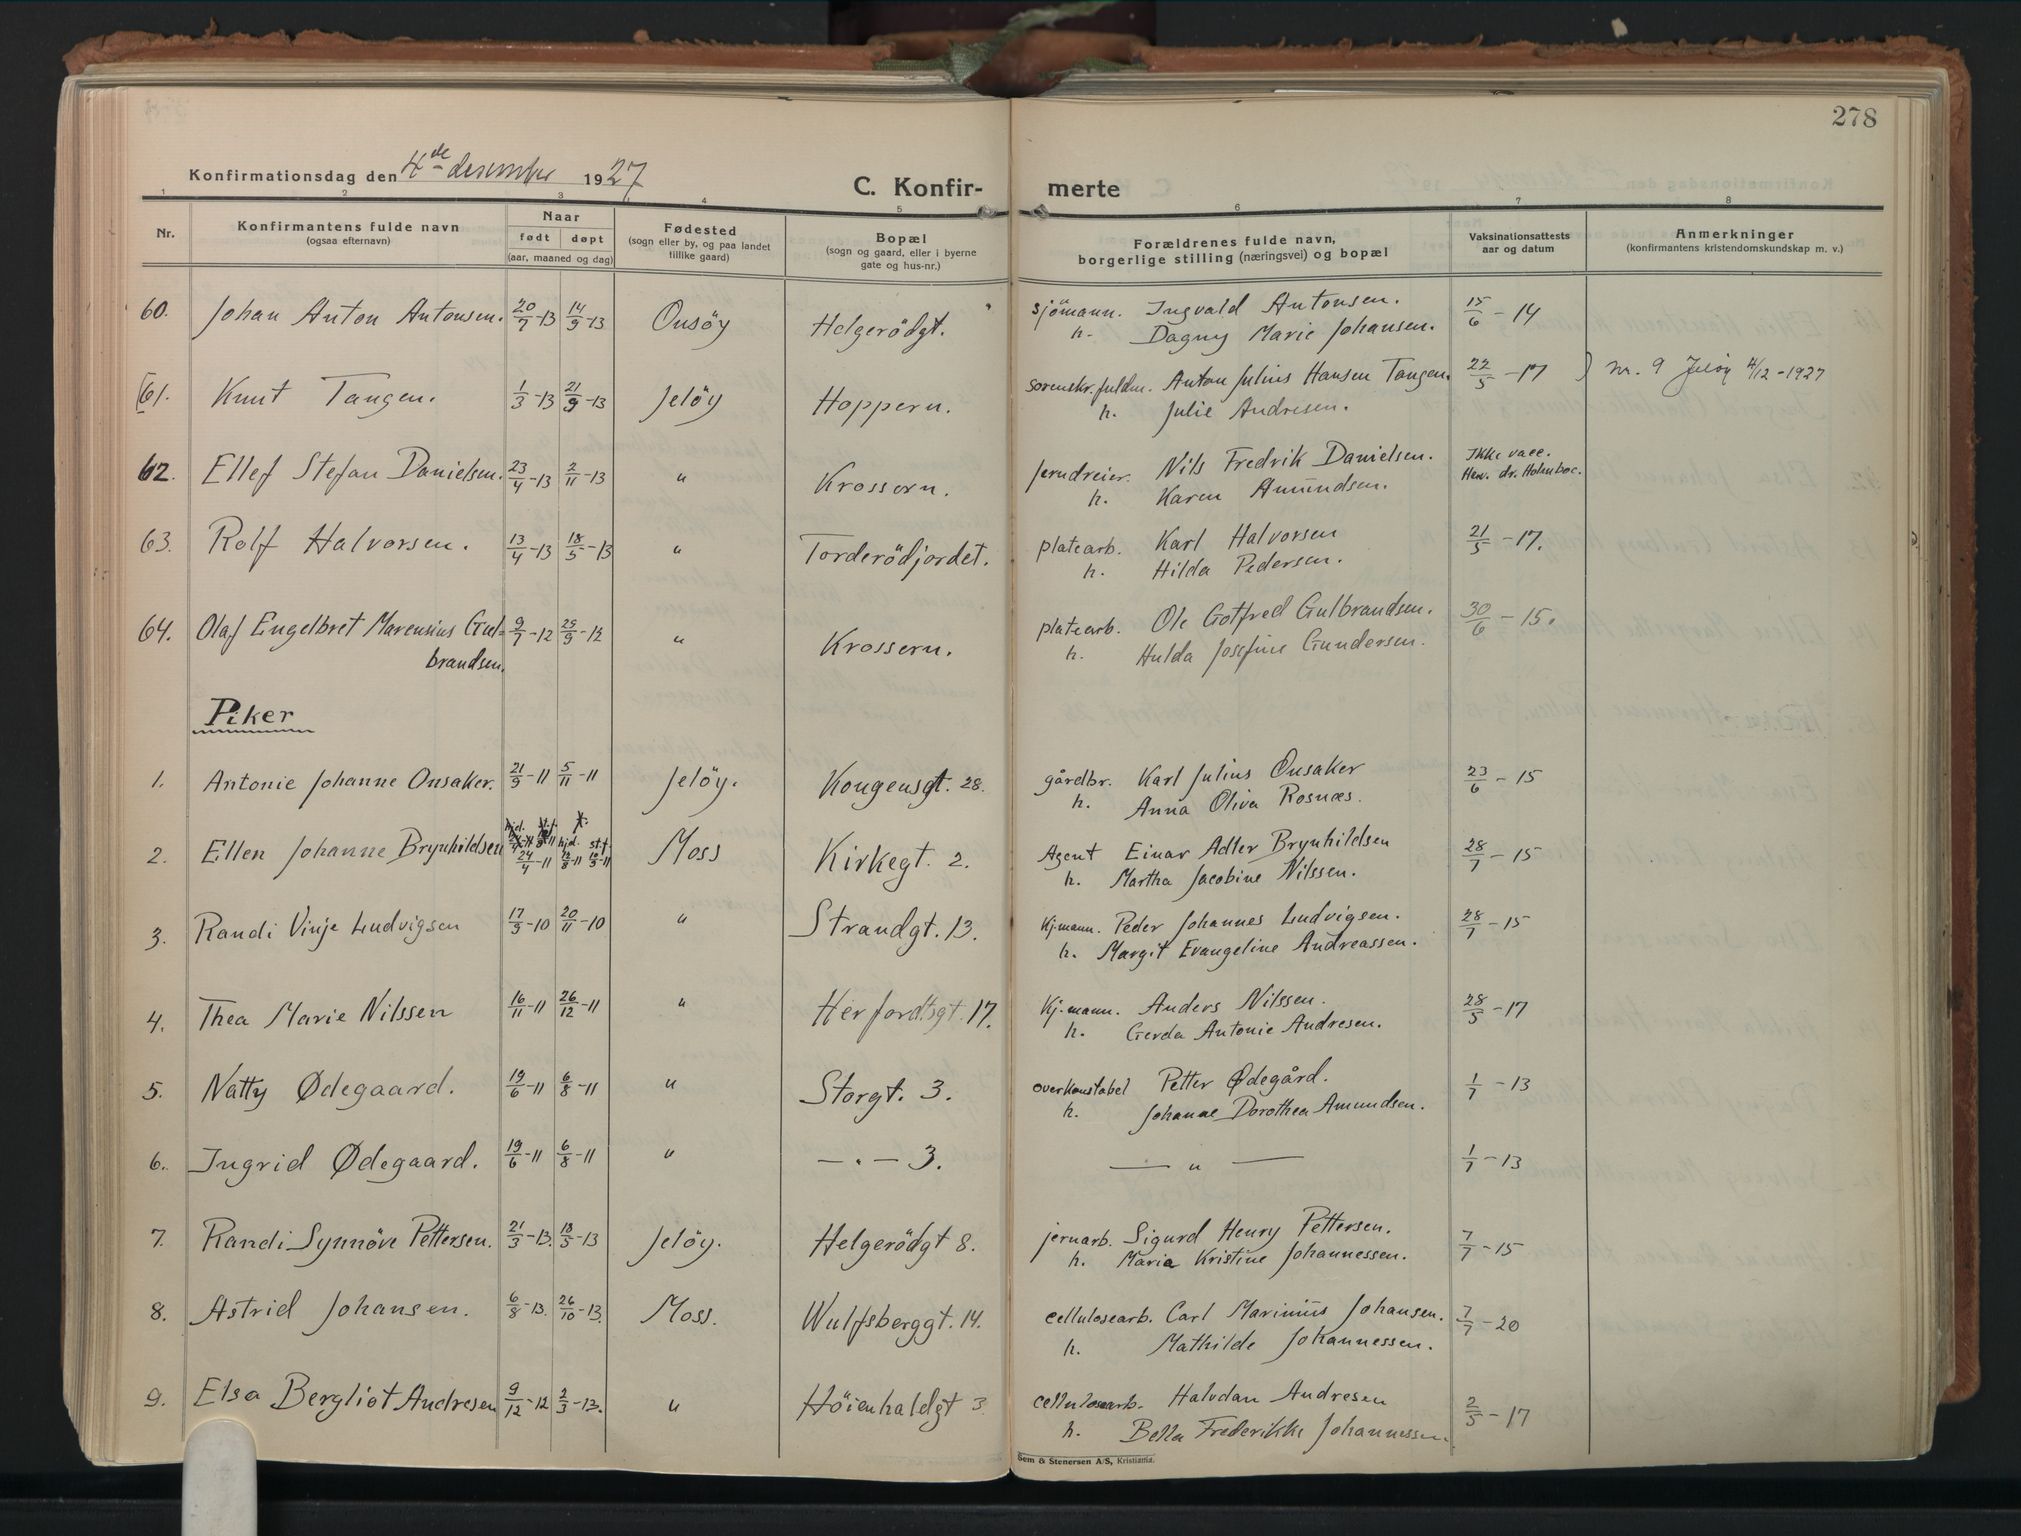 278
Konfirmationsdag den 4de desember 1927
C. Konfir- merte
1 2 3 4 5 6 7 8
Nr.
Konfirmantens fulde navn
(ogsaa efternavn)
Naar
født døpt
(aar, maaned og dag)
Fødested
(sogn eller by, og paa landet
tillike gaard)
Bopæl
(sogn og gaard, eller i byerne
gate og hus-nr.)
Forældrenes fulde navn,
borgerlige stilling (næringsvei) og bopæl
Vaksinationsattests
aar og datum
Anmerkninger
(konfirmantens kristendomskundskap m. v.)
60. Johan Anton Antonsen. 20/7-13 14/9-13 Onsöy Helgerödgt. sjömann. Ingvald Antonsen. 15/6-14
h. Dagny Marie Johansen.
61. Knut Tangen. 1/3-13 21/9-13 Jelöy Hoppern. sorenskr.fuldm. Anton Julius Hansen Tangen. 22/5-17 } nr. 9 Jelöy 4/12-1927
h. Julie Andresen.
62. Ellef Stefan Danielsen. 23/4-13 2/11-13 " Krossern. jerndreier. Nils Fredrik Danielsen. Ikke vacc.
h. Karen Amundsen. Hen. dr. Holmboe.
63. Rolf Halvorsen. 13/4-13 18/5-13 " Torderödjordet. platearb. Karl Halvorsen 21/5-17.
h. Hilda Pedersen.
64. Olaf Engelbret Marensius Gul- 9/7-12 29/9-12 " Krossern. platearb. Ole Gotfred Gulbrandsen. 30/6-15.
brandsen. h. Hulda Josefine Gundersen.
Piker
1. Antonie Johanne Onsaker. 21/9-11 5/11-11 Jelöy. Kongensgt. 28. gårdbr. Karl Julius Onsaker 23/6-15
h. Anna Oliva Rosnæs.
2. Ellen Johanne Brynhildsen 24/4-11 hjd. st.f. Moss Kirkegt. 2. Agent Einar Adler Brynhildsen 28/7-15
h. Martha Jacobine Nilssen.
3. Randi Vinje Ludvigsen 17/9-10 20/11-10 " Strandgt. 13. Kjmann. Peder Johannes Ludvigsen. 28/7-15
h. Margit Evangeline Andreassen.
4. Thea Marie Nilssen 16/11-11 26/12-11 " Herfordtsgt. 17. Kj.mann. Anders Nilssen. 28/5-17
h. Gerda Antonie Andresen.
5. Natty Ødegaard. 19/6-11 6/8-11 " Storgt. 3. overkonstabel Petter Ødegård. 1/7-13
h. Johanne Dorothea Amundsen.
6. Ingrid Ødegaard. 19/6-11 6/8-11 " — " — 3. — " — 1/7-13
7. Randi Synnøve Pettersen. 21/3-13. 18/5-13 Jelöy. Helgerödgt 8. jernarb. Sigurd Henry Pettersen. 7/7-15
h. Maria Kristine Johannessen.
8. Astrid Johansen. 6/8-13. 26/10-13. Moss. Wulfsberggt. 14. cellulosearb. Carl Marinius Johansen. 7/7-20
h. Mathilde Johannessen.
9. Elsa Bergliot Andresen 9/12-12 2/3-13. " Höienhaldgt 3. cellulosearb. Halvdan Andresen 2/5-17
h. Bella Frederikke Johannessen.
Sem & Stenersen A/S, Kristiania.